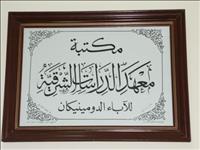 مكتبة
معهد الدراسات الشرقية
للآباء الدومينيكان